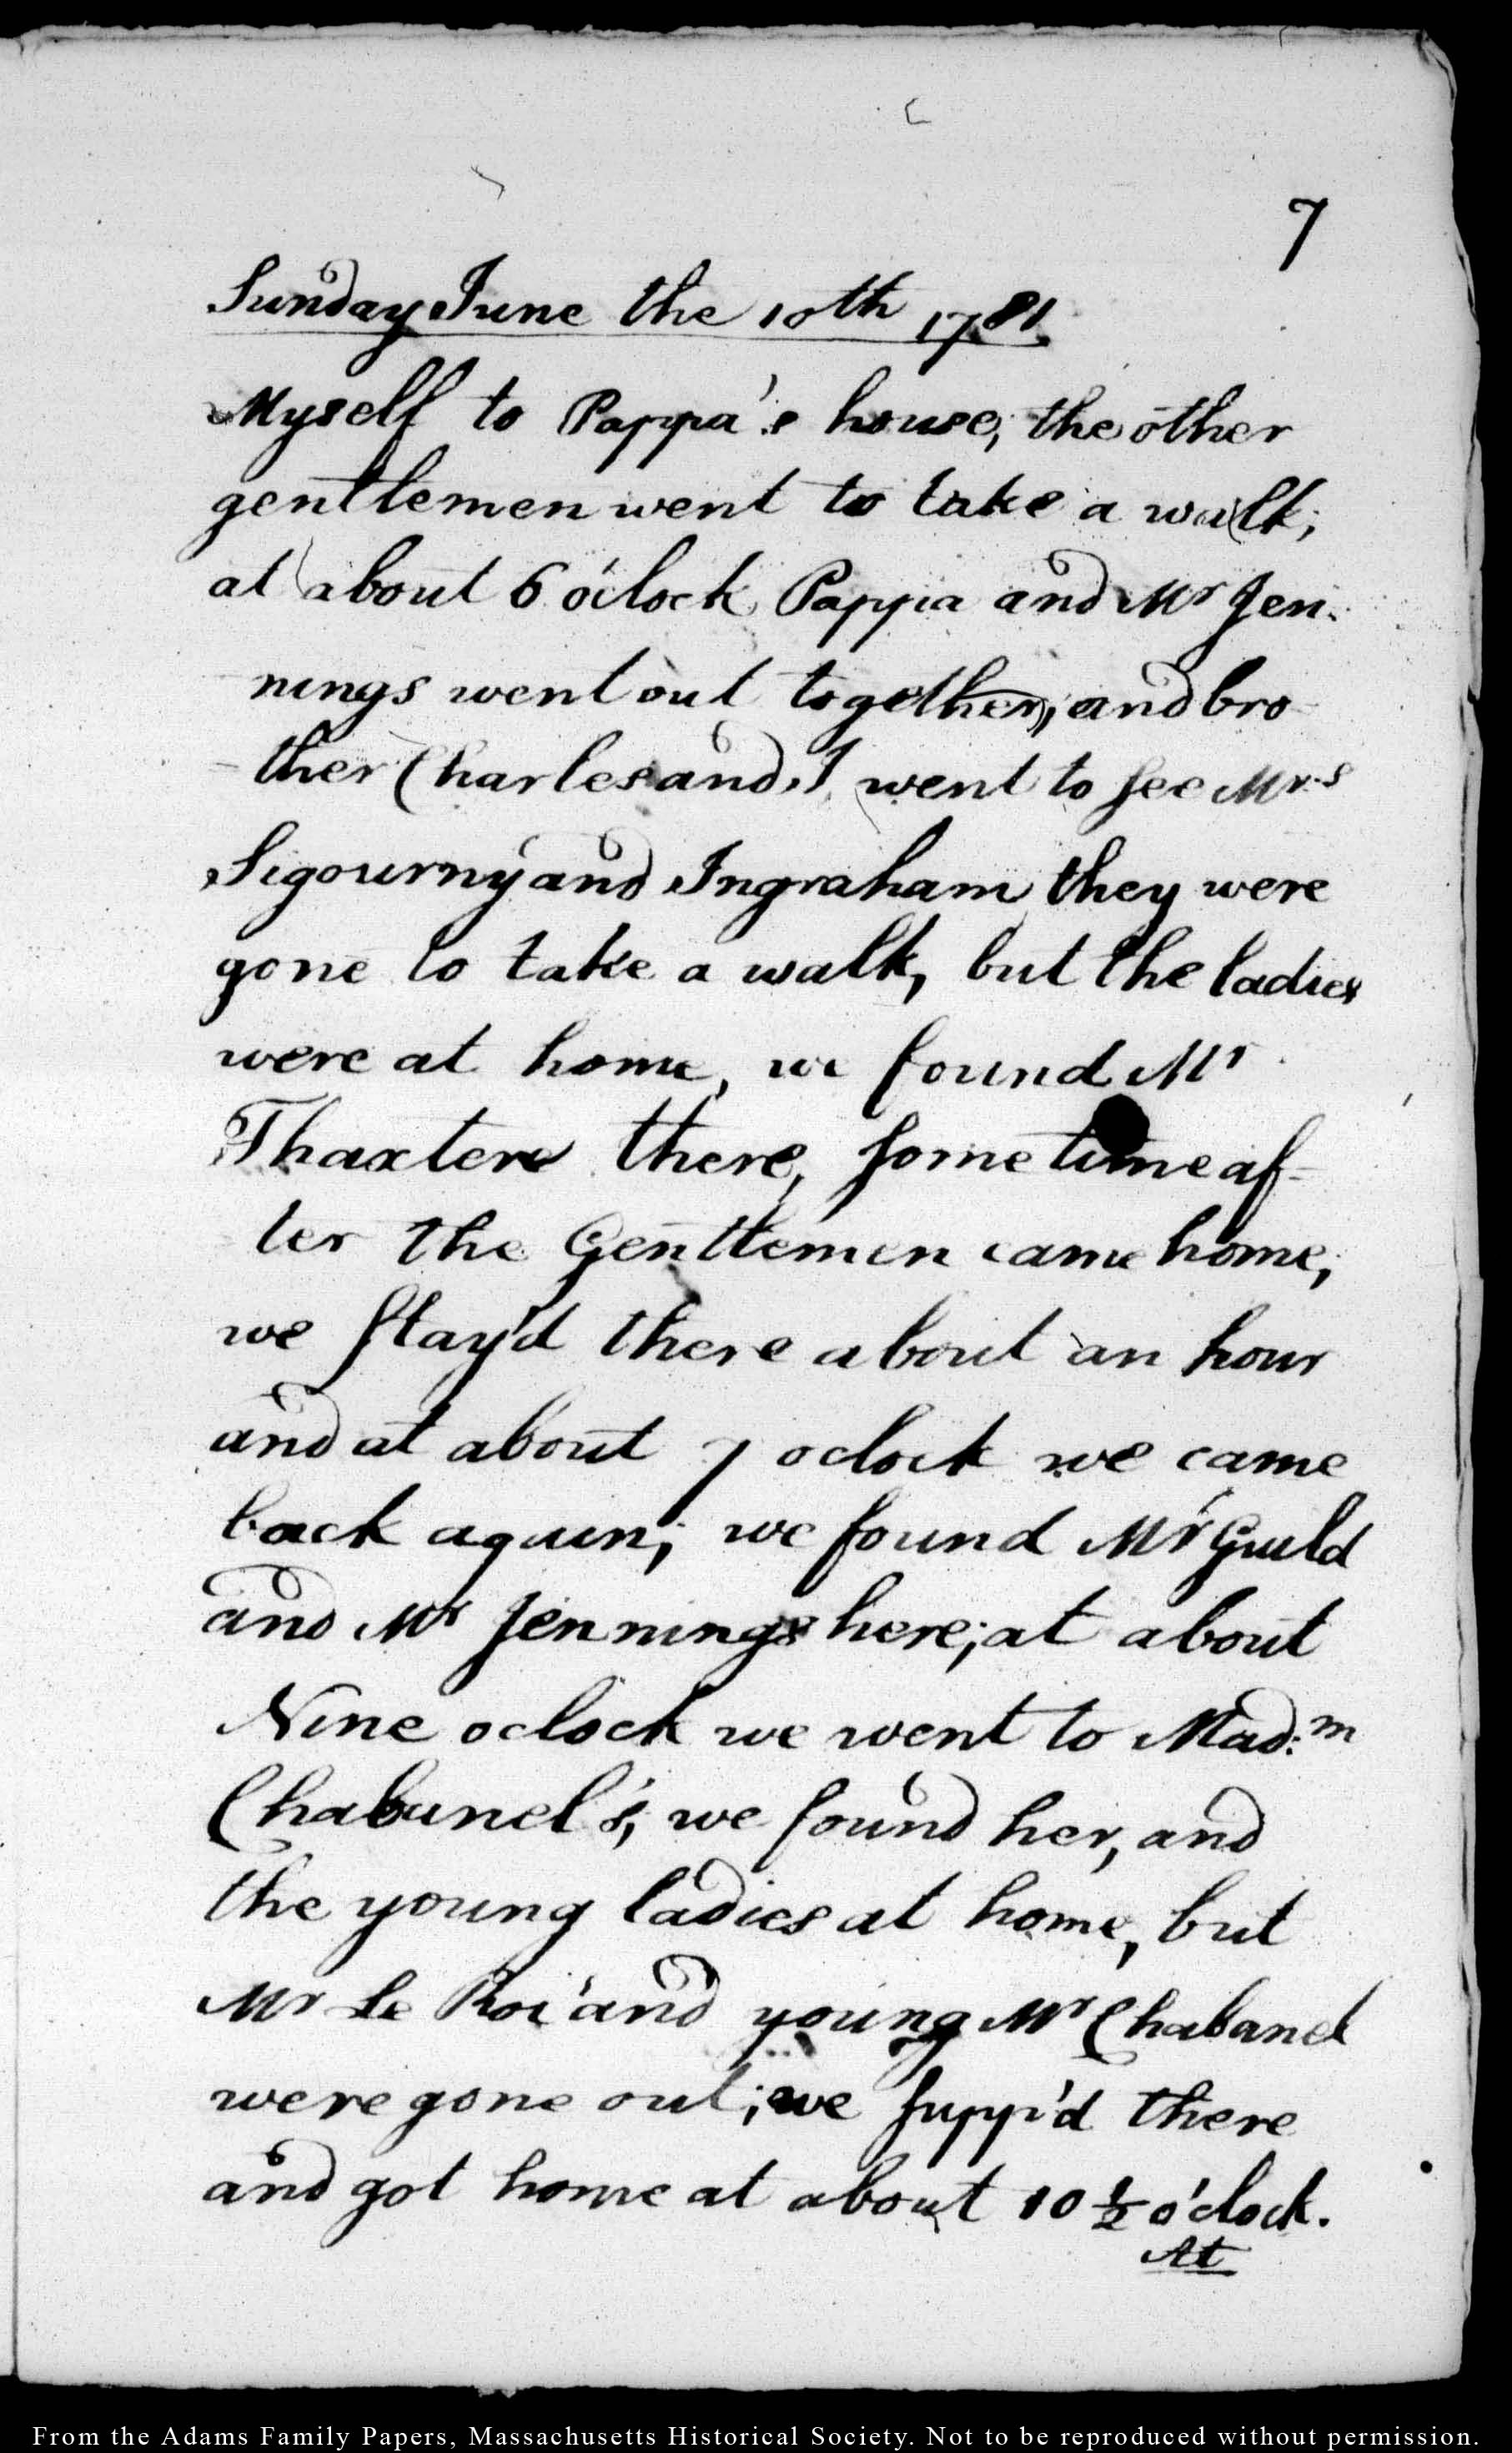 7
Sunday June the 10th 1781.
Myself to Pappa's house; the other
gentlemen went to take a walk;
at about 6 o'clock Pappa and Mr Jen-
nings went out together, and bro-
ther Charles and I went to see Mrs
Sigourny and Ingraham they were
gone to take a walk, but the ladies
were at home, we found Mr
Thaxter there, some time af-
ter the Gentlemen came home,
we stay'd there about an hour
and at about 7 oclock we came
back again; we found Mr Guild
and Mr Jennings here; at about
Nine oclock we went to Mad:m
Chabanel's, we found her, and
the young ladies at home, but
Mr Le Roi and young Mr Chabanel
were gone out; we supp'd there
and got home at about 10 ½ o'clock.
At
From the Adams Family Papers, Massachusetts Historical Society. Not to be reproduced without permission.